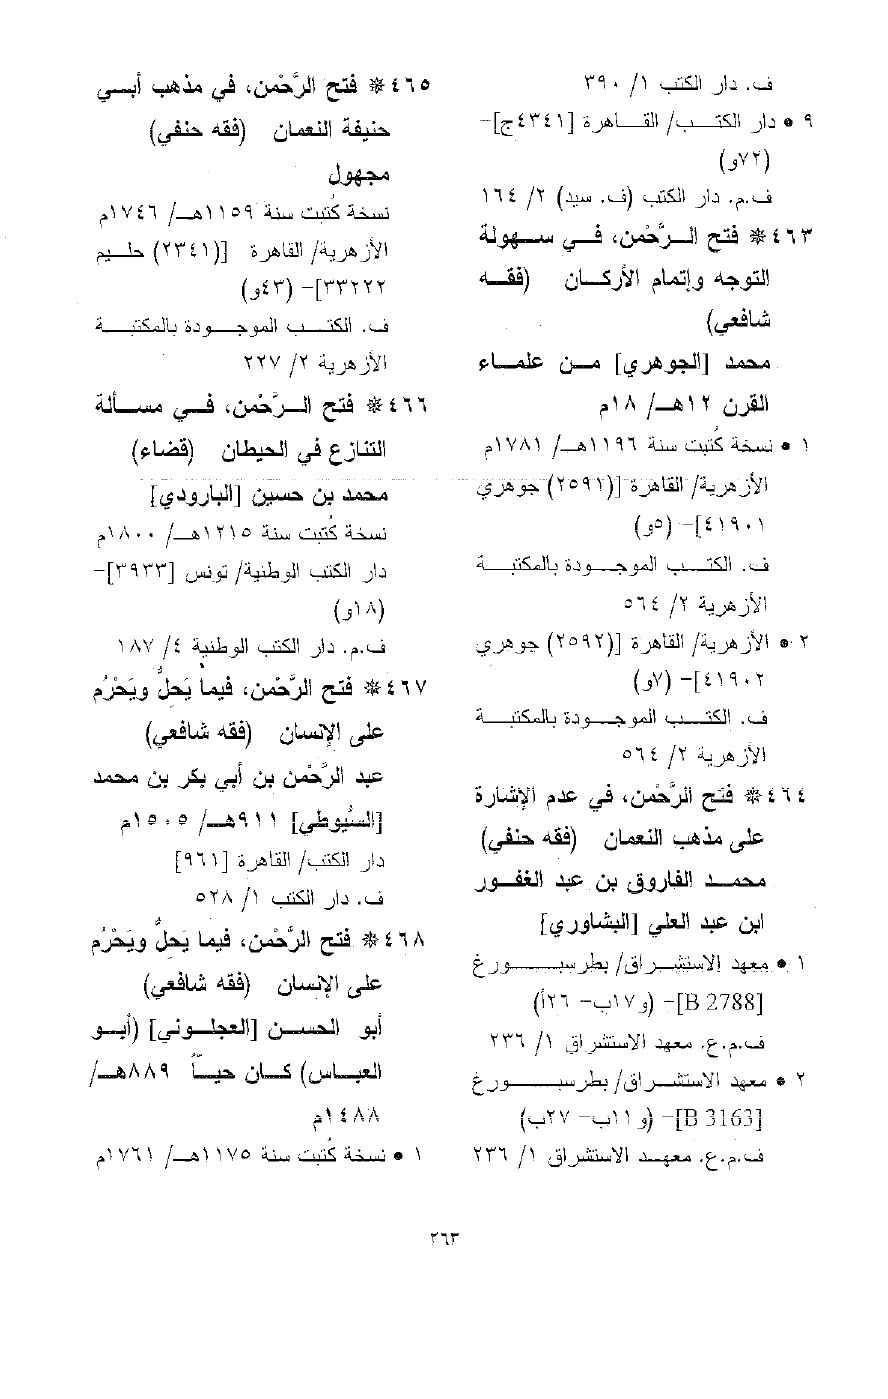 ف. دار الكتب ١/ ٣٩٠
٩ • دار الكتب/ القاهرة [٤٣٤١ج]-
(٧٢و)
ف.م. دار الكتب (ف. سيد) ٢/ ١٦٤
٤٦٣ * فتح الرَّحْمن، في سهولة
التوجه وإتمام الأركان (فقه
شافعي)
محمد [الجوهري] من علماء
القرن ١٢هـ/ ١٨م
١ • نسخة كُتبت سنة ١١٩٦هـ/ ١٧٨١م
الأزهرية/ القاهرة [(٢٥٩١) جوهري
٤١٩٠١]- (٥و)
ف. الكتب الموجودة بالمكتبة
الأزهرية ٢/ ٥٦٤
٢ • الأزهرية/ القاهرة [(٢٥٩٢) جوهري
٤١٩٠٢]- (٧و)
ف. الكتب الموجودة بالمكتبة
الأزهرية ٢/ ٥٦٤
٤٦٤ * فتح الرَّحْمن، في عدم الإشارة
على مذهب النعمان (فقه حنفي)
محمد الفاروق بن عبد الغفور
ابن عبد العلي [البشاوري]
١ • معهد الاستشراق/ بطرسبورغ
[B 2788]- (و١٧ب- ٢٦أ)
ف.م.ع. معهد الاستشراق ١/ ٢٣٦
٢ • معهد الاستشراق/ بطرسبورغ
[B 3163]- (و١١ب- ٢٧ب)
ف.م.ع. معهد الاستشراق ١/ ٢٣٦
٤٦٥ * فتح الرَّحْمن، في مذهب أبي
حنيفة النعمان (فقه حنفي)
مجهول
نسخة كُتبت سنة ١١٥٩هـ/ ١٧٤٦م
الأزهرية/ القاهرة [(٢٣٤١) حليم
٣٣٢٢٢]- (٤٣و)
ف. الكتب الموجودة بالمكتبة
الأزهرية ٢/ ٢٢٧
٤٦٦ * فتح الرَّحْمن، في مسألة
التنازع في الحيطان (قضاء)
محمد بن حسين [البارودي]
نسخة كُتبت سنة ١٢١٥هـ/ ١٨٠٠م
دار الكتب الوطنية/ تونس [٣٩٣٣]-
(١٨و)
ف.م. دار الكتب الوطنية ٤/ ١٨٧
٤٦٧ * فتح الرَّحْمن، فيما يَحلُّ ويَحْرُم
على الإنسان (فقه شافعي)
عبد الرَّحْمن بن أبي بكر بن محمد
[السُيوطي] ٩١١هـ/ ١٥٠٥م
دار الكتب/ القاهرة [٩٦١]
ف. دار الكتب ١/ ٥٢٨
٤٦٨ * فتح الرَّحْمن، فيما يَحلُّ ويَحْرُم
على الإنسان (فقه شافعي)
أبو الحسن [العجلوني] (أبو
العباس) كان حيّاً ٨٨٩هـ/
١٤٨٨م
١ • نسخة كُتبت سنة ١١٧٥هـ/ ١٧٦١م
٢٦٣